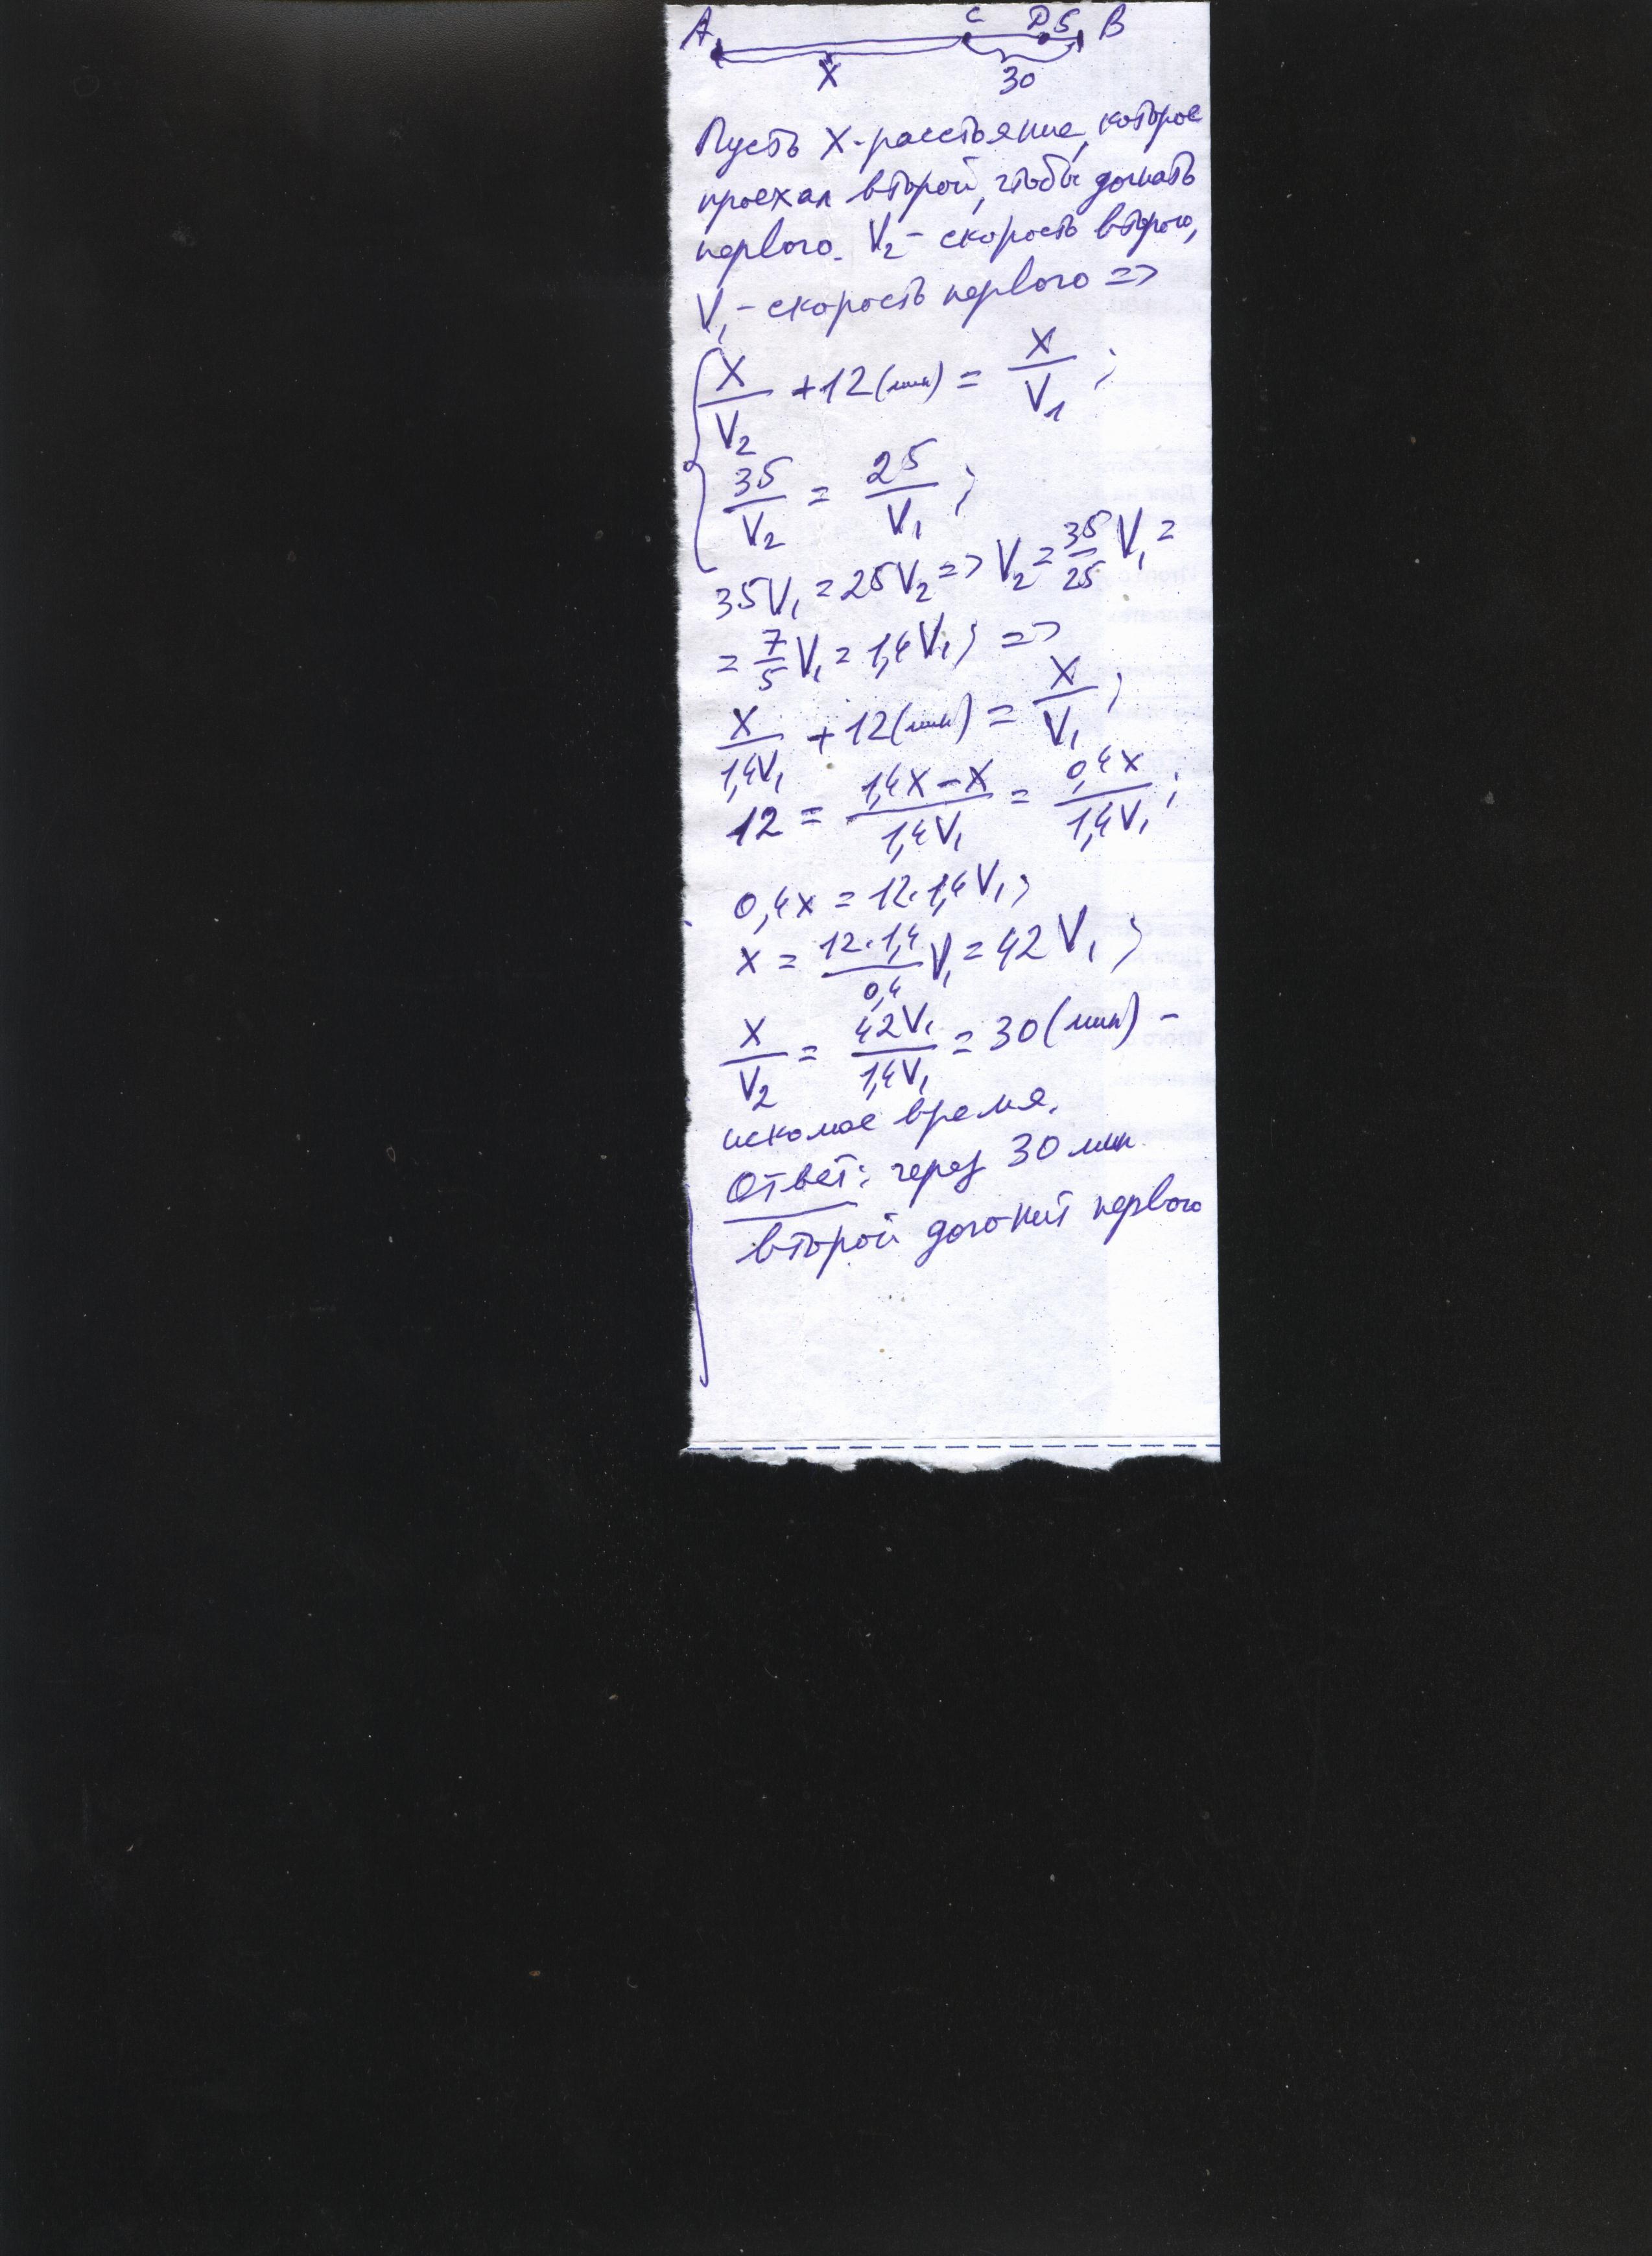 A C D 5 B
X 30
Пусть X-расстояние, которое
проехал второй, чтобы догнать
первого. V₂ - скорость второго,
V₁ - скорость первого =>
X/V₂ + 12 (мин) = X/V₁ ;
35/V₂ = 25/V₁ ;
35V₁ = 25V₂ => V₂ = 35/25 V₁ =
= 7/5 V₁ = 1,4V₁ ; =>
X/1,4V₁ + 12 (мин) = X/V₁ ;
12 = 1,4X - X/1,4V₁ = 0,4X/1,4V₁ ;
0,4X = 12·1,4V₁ ;
X = 12·1,4/0,4 V₁ = 42V₁ ;
X/V₂ = 42V₁/1,4V₁ = 30 (мин) -
искомое время.
Ответ: через 30 мин
второй догонит первого